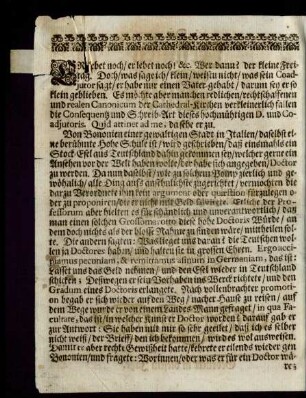 ER lebet noch/ er lebet noch! &c. Wer dann? der kleine Frei-
tag. Doch/ was sage ich/ klein/ weiß du nicht/ was sein Coad-
jutor sagt/ er habe nur einen Vater gehabt/ darum sey er so
klein geblieben. Es möchte aber manchen redlichen/rechtschaffenen
und realen Canonicum der Cathedral-Kirchen verkleinerlich fallen
die Consequentz und Schreib-Art dieses hochmühtigen D. und Co-
adjutoris. Quid attinet ad me? dachte er zu.
Von Bononien einer gewaltigen Stadt in Italien/ daselbst ei-
ne berühmte Hohe Schule ist/ wird geschrieben/ daß einsmahls ein
Stock-Esel aus Teutschland dahin gekommen sey/welcher gerne ein
Ansehen vor der Welt haben wolte/ er habe sich angegeben/ Doctor
zu werden. Da nun daselbst/ wie zu solchem Pomp zierlich und ge-
wöhnlich/ alle Ding auffs ansehnlichste zugerichtet/ vermochten die
dazu Verordnete ihm kein argument oder quæstion fürzulegen o-
der zu proponiren/ die er nicht mit Geld solvirte. Etliche der Pro-
fessorum aber hielten es für schändlich und unverantwortlich/ daß
man einem solchen die hohe Doctors Würde/ an
dem doch nichts als der blosse Nahme zu finden wäre/ mittheilen sol-
te. Die andern sagten: Was lieget uns daran? die Teutschen wol-
len ja Doctores haben/ und halten sie in grossen Ehren. Ergo acci-
piamus pecuniam, & remittamus asinum in Germaniam, das ist:
Lasset uns das Geld nehmen/ und den Esel wieder in Teutschland
schicken: Deswegen er sein Vorhaben ins Werck richtete/ und den
Gradum eines Doctoris erlangete. Nach vollenbrachter promoti-
on begab er sich wieder auf den Weg/ nacher Hause zu reisen/ auf
dem Wege wurde er von einem Landes Mann gefraget/ in qua Fa-
cultate, das ist/in welcher Kunst er Doctor worden? darauf gab er
zur Antwort: Sie haben mit mir so sehr geeilet/ daß ich es selber
nicht weiß/ der Brieff/ den ich bekommen/ wird es wol ausweisen.
Damit er aber rechte Gewißheit hätte/kehrete er eilends wieder gen
Bononien/und fragete: Worinnen/oder was er für ein Doctor wä-
re?